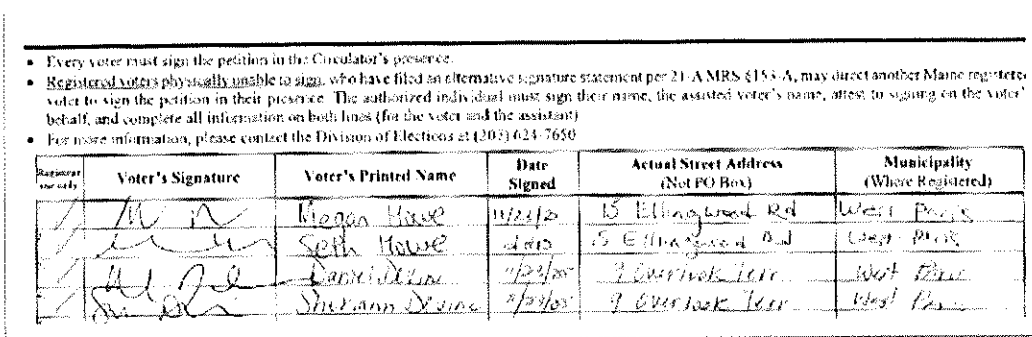 • Every voter must sign the petition in the Circulator's presence.
• Registered voters physically unable to sign, who have filed an alternative signature statement per 21-A MRS §153-A, may direct another Maine registered
voter to sign the petition in their presence. The authorized individual must sign their name, the assisted voter's name, attest to signing on the voter's
behalf, and complete all information on both lines (for the voter and the assistant)
• For more information, please contact the Division of Elections at (207) 624-7650
Registrar use only Voter's Signature Voter's Printed Name Date Signed Actual Street Address (Not PO Box) Municipality (Where Registered)
Megan Howe 15 Ellingwood Rd West Paris
Seth Howe 15 Ellingwood Rd West Paris
Daniel Devine 9 Overlook Terr West Paris
Devine 9 Overlook Terr West Paris